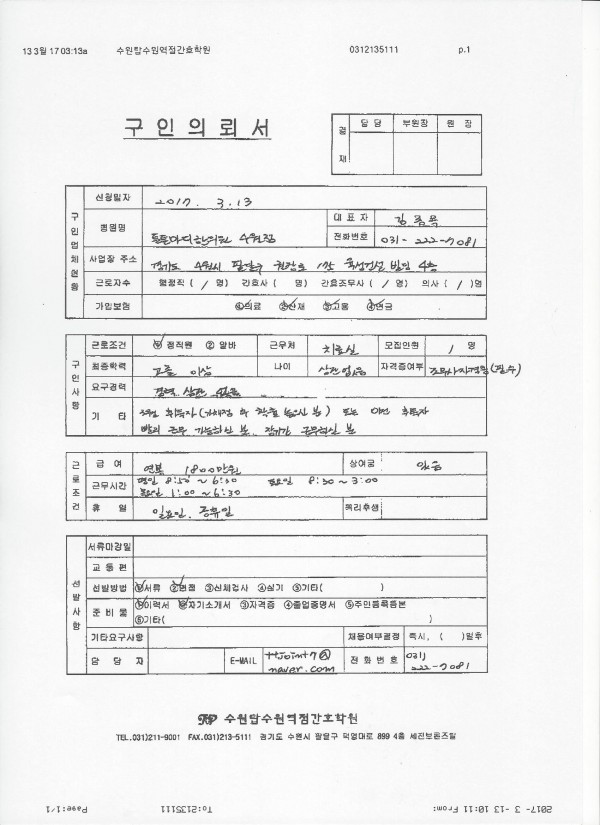 13 3월 17 03:13a 수원탑수원역점간호학원 0312135111 p.1
구인의뢰서
결재 담당 부원장 원장
구인업체현황
신청일자 2017. 3.13
병원명 튼튼마디한의원 수원점
대표자 김종욱
전화번호 031-222-7081
사업장 주소 경기도 수원시 팔달구 빌딩 4층
근로자수 행정직 ( / 명) 간호사 ( 명) 간호조무사 ( / 명) 의사 ( / )명
가입보험 ①의료 ②산재 ③고용 ④연금
구인사항
근로조건 ① 정직원 ② 알바 근무처 치료실 모집인원 1 명
최종학력 고졸 이상 나이 상관없음 자격증여부 (필수)
요구경력 경력 상관 없음
기타 취득자 또는 이전 취득자
빨리 근무 가능하신 분, 장기간 근무하실 분
근로조건
급여 연봉 1800만원 상여금 있음
근무시간 평일 8:50 ~ 6:30 토요일 8:30 ~ 3:00
1:00 ~ 6:30
휴일 일요일, 공휴일 복리후생
선발사항
서류마감일
교통편
선발방법 ①서류 ②면접 ③신체검사 ④실기 ⑤기타( )
준비물 ①이력서 ②자기소개서 ③자격증 ④졸업증명서 ⑤주민등록등본
⑥기타( )
기타요구사항 채용여부결정 즉시, ( )일후
담당자 E-MAIL ttjoint7@naver.com 전화번호 031) 222-7081
TOP 수원탑수원역점간호학원
TEL.031)211-9001 FAX.031)213-5111 경기도 수원시 팔달구 덕영대로 899 4층 세진브론즈빌
2017- 3 -13 10:11 From: To:2135111 Page:1/1